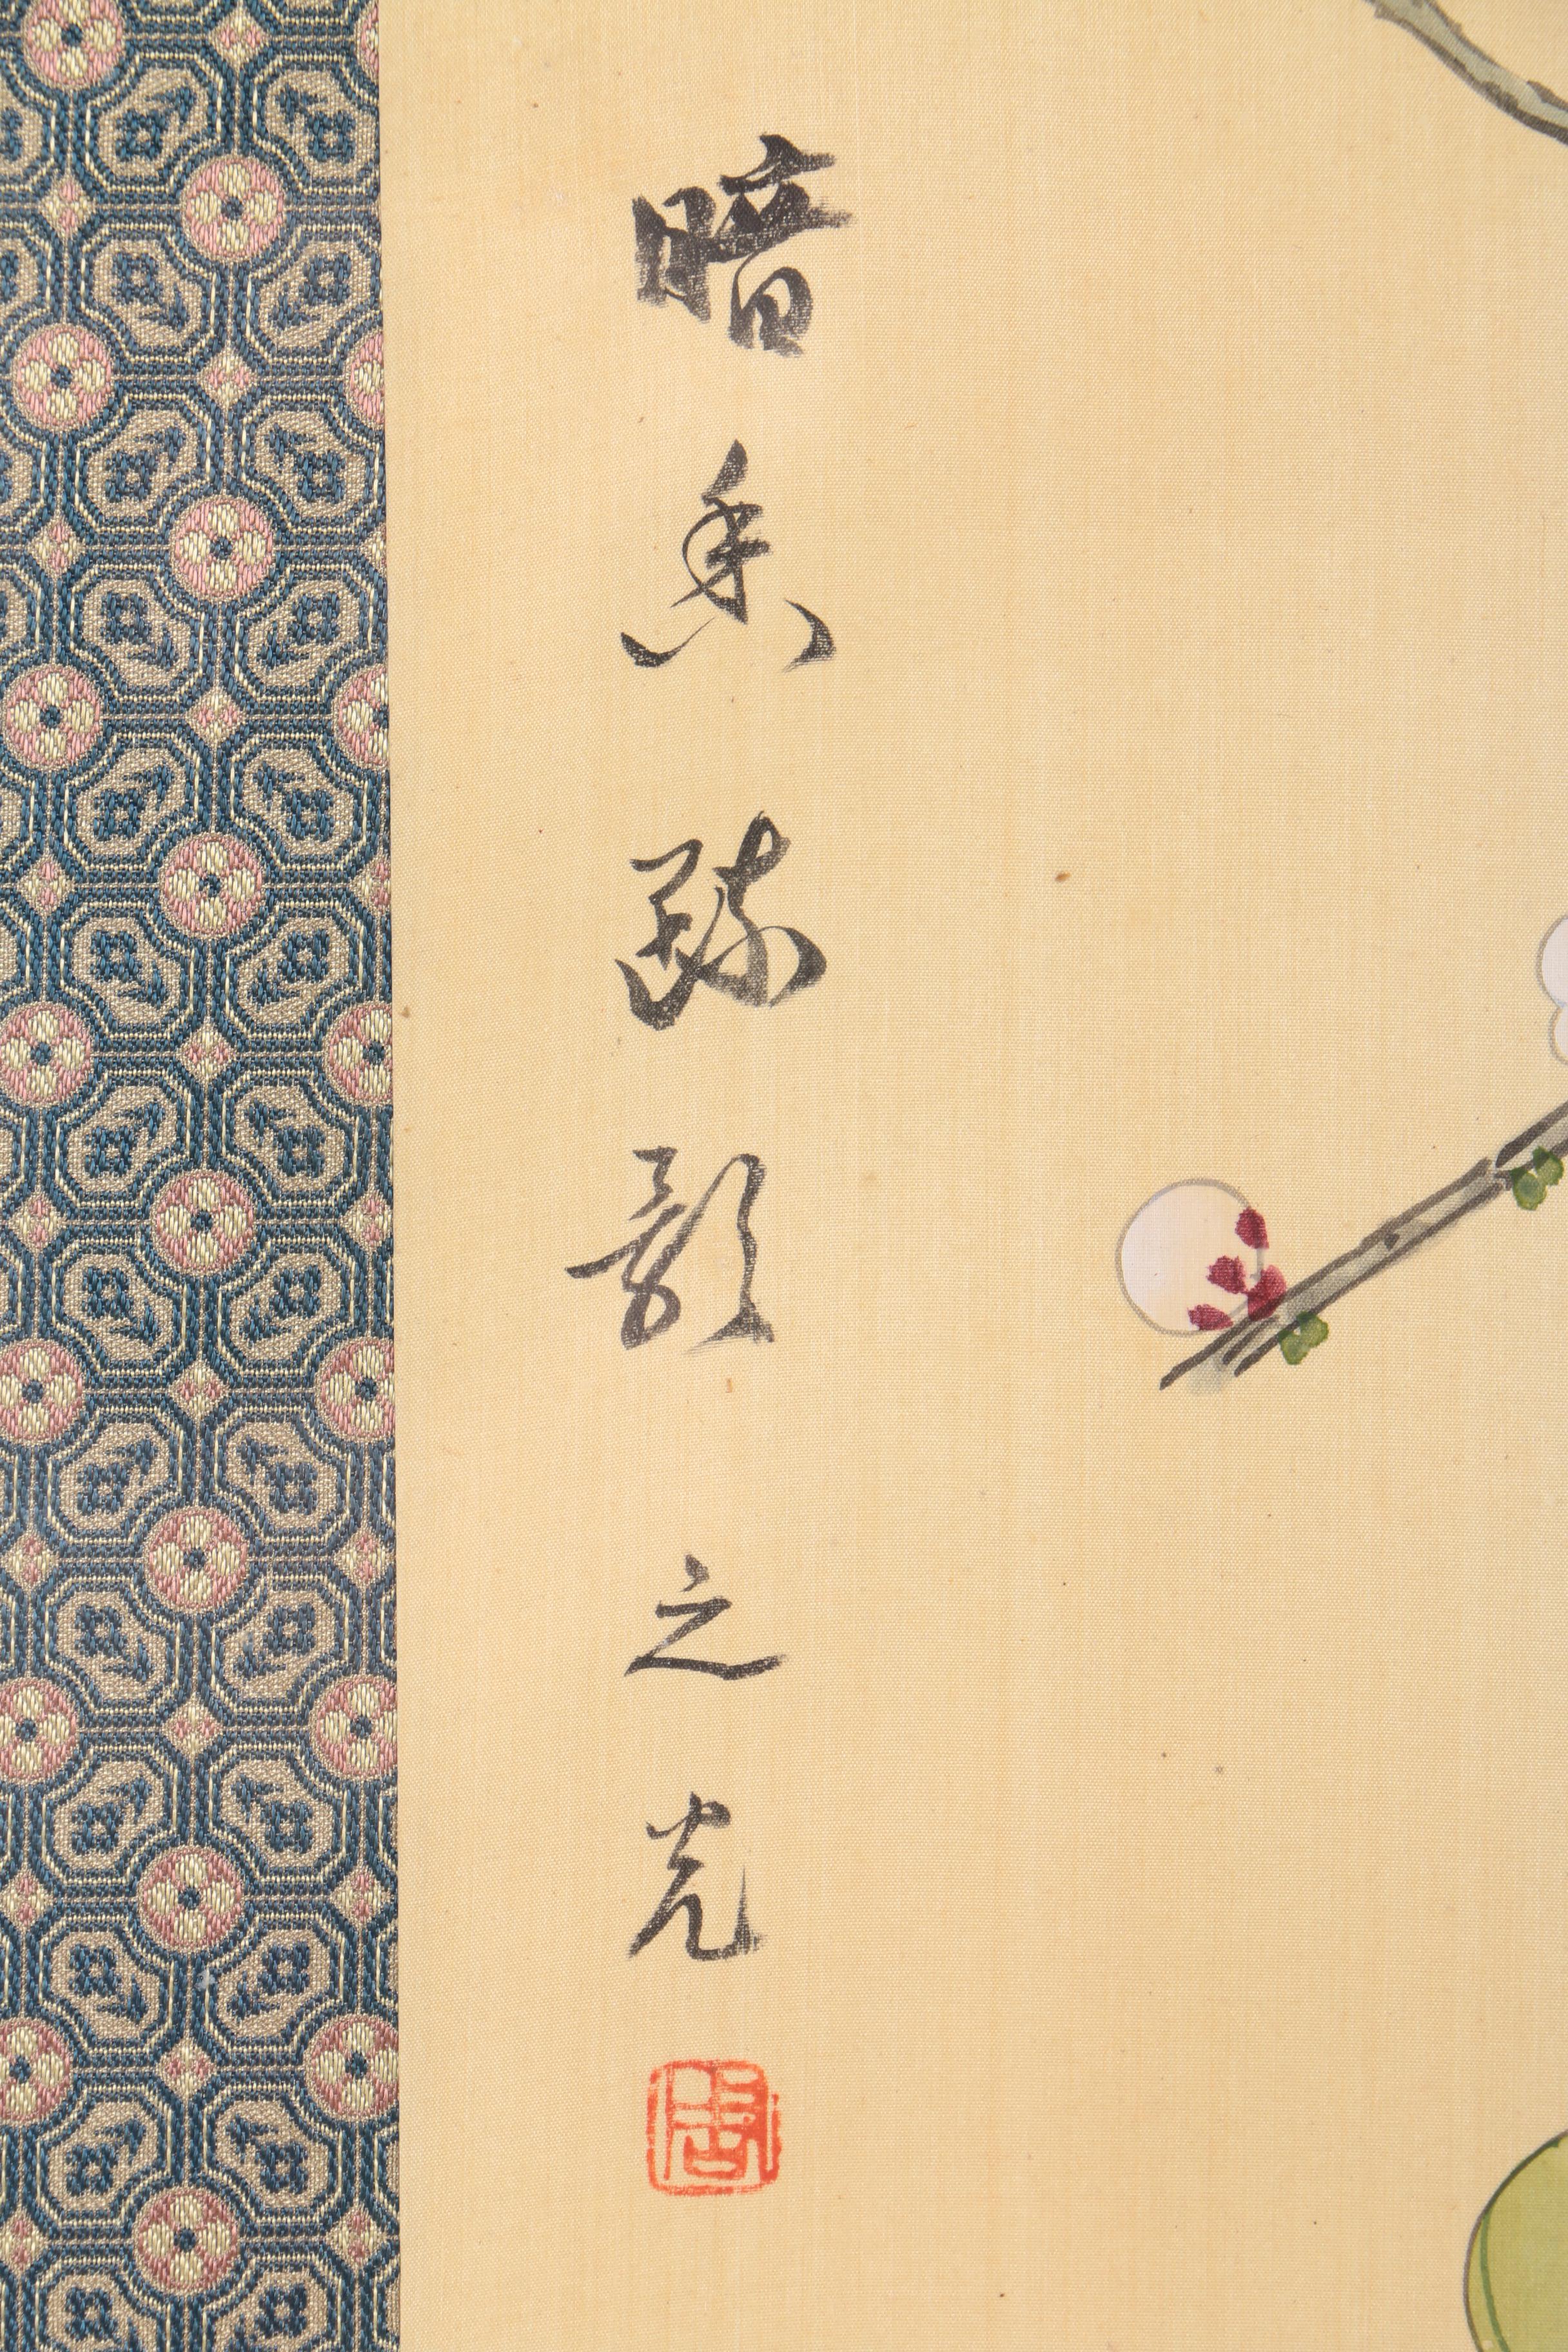 暗香疎影之光